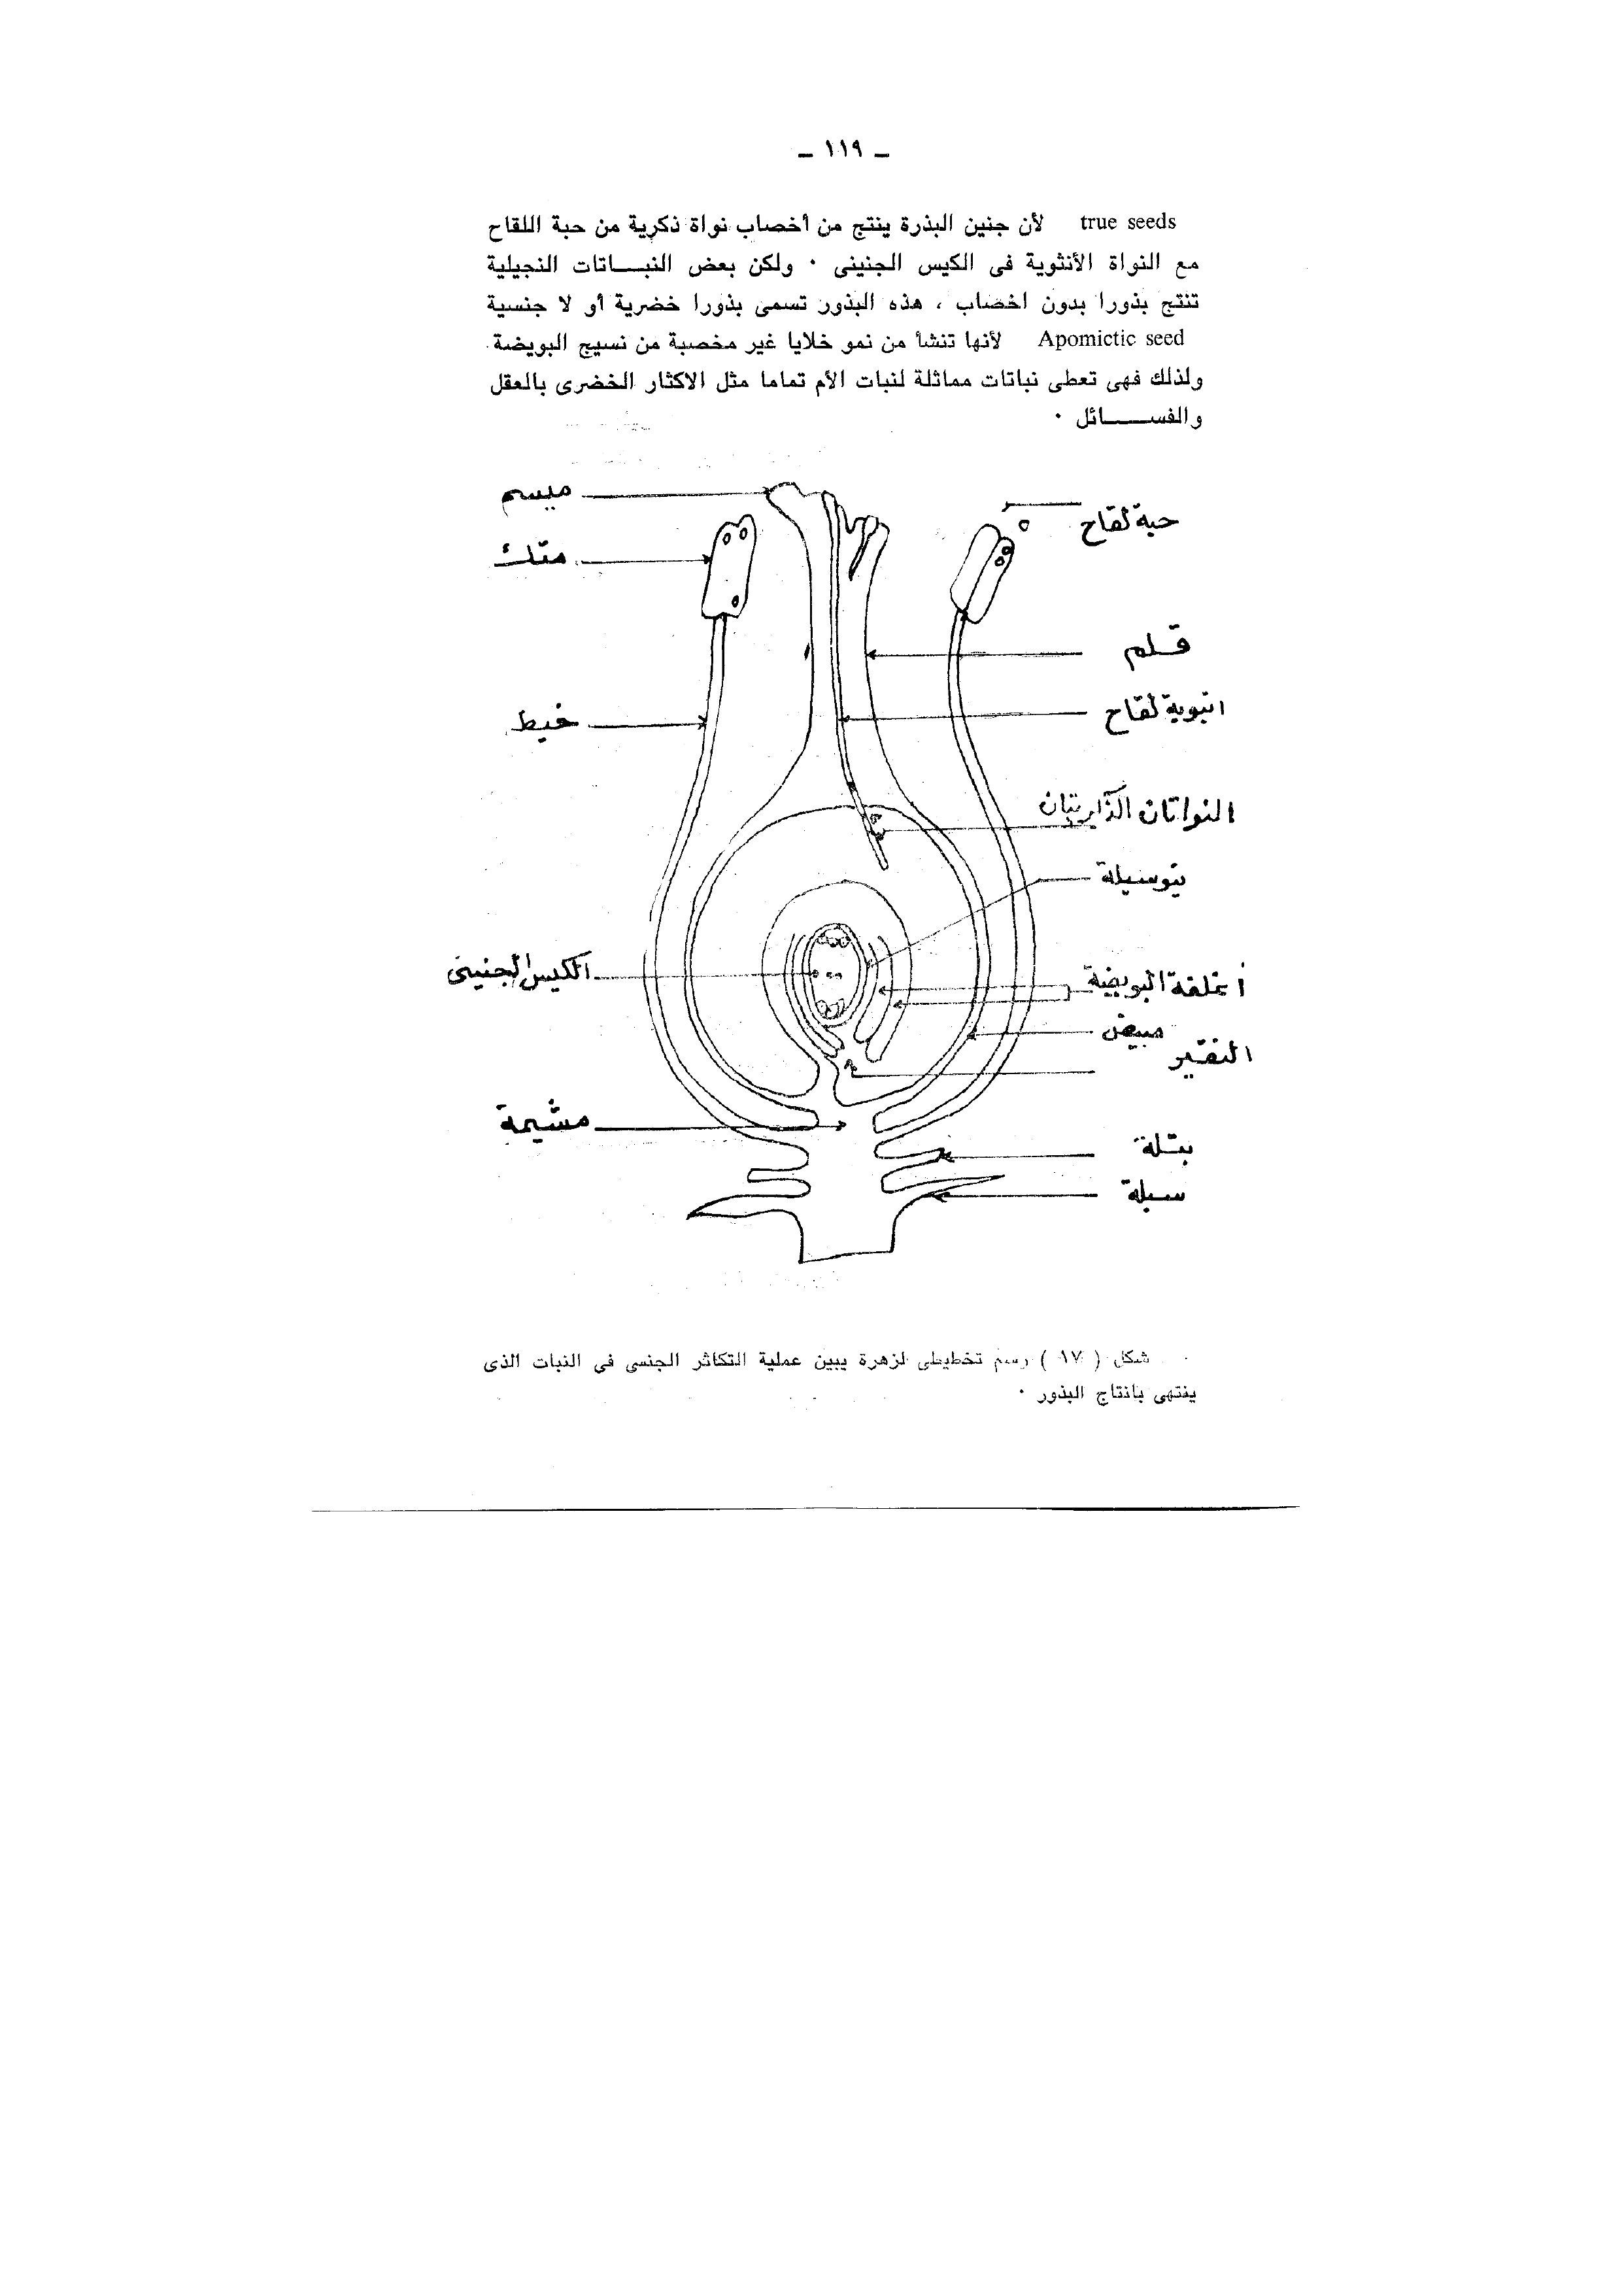 ـ ١١٩ ـ
true seeds لأن جنين البذرة ينتج من أخصاب نواة ذكرية من حبة اللقاح
مع النواة الأنثوية فى الكيس الجنينى ٠ ولكن بعض النبـــاتات النجيلية
تنتج بذورا بدون اخصاب ، هذه البذور تسمى بذورا خضرية أو لا جنسية
Apomictic seed لأنها تنشأ من نمو خلايا غير مخصبة من نسيج البويضة
ولذلك فهى تعطى نباتات مماثلة لنبات الأم تماما مثل الاكثار الخضرى بالعقل
والفســـــائل ٠
ميسم
حبة لقاح
متك
قلم
انبوبة لقاح
خيط
النواتان الذكريتان
نيوسيلة
الكيس الجنينى
أغلفة البويضة
مبيض
النقير
مشيمة
بتلة
سبلة
شكل ( ١٧ ) رسم تخطيطى لزهرة يبين عملية التكاثر الجنسى فى النبات الذى
ينتهى بانتاج البذور ٠